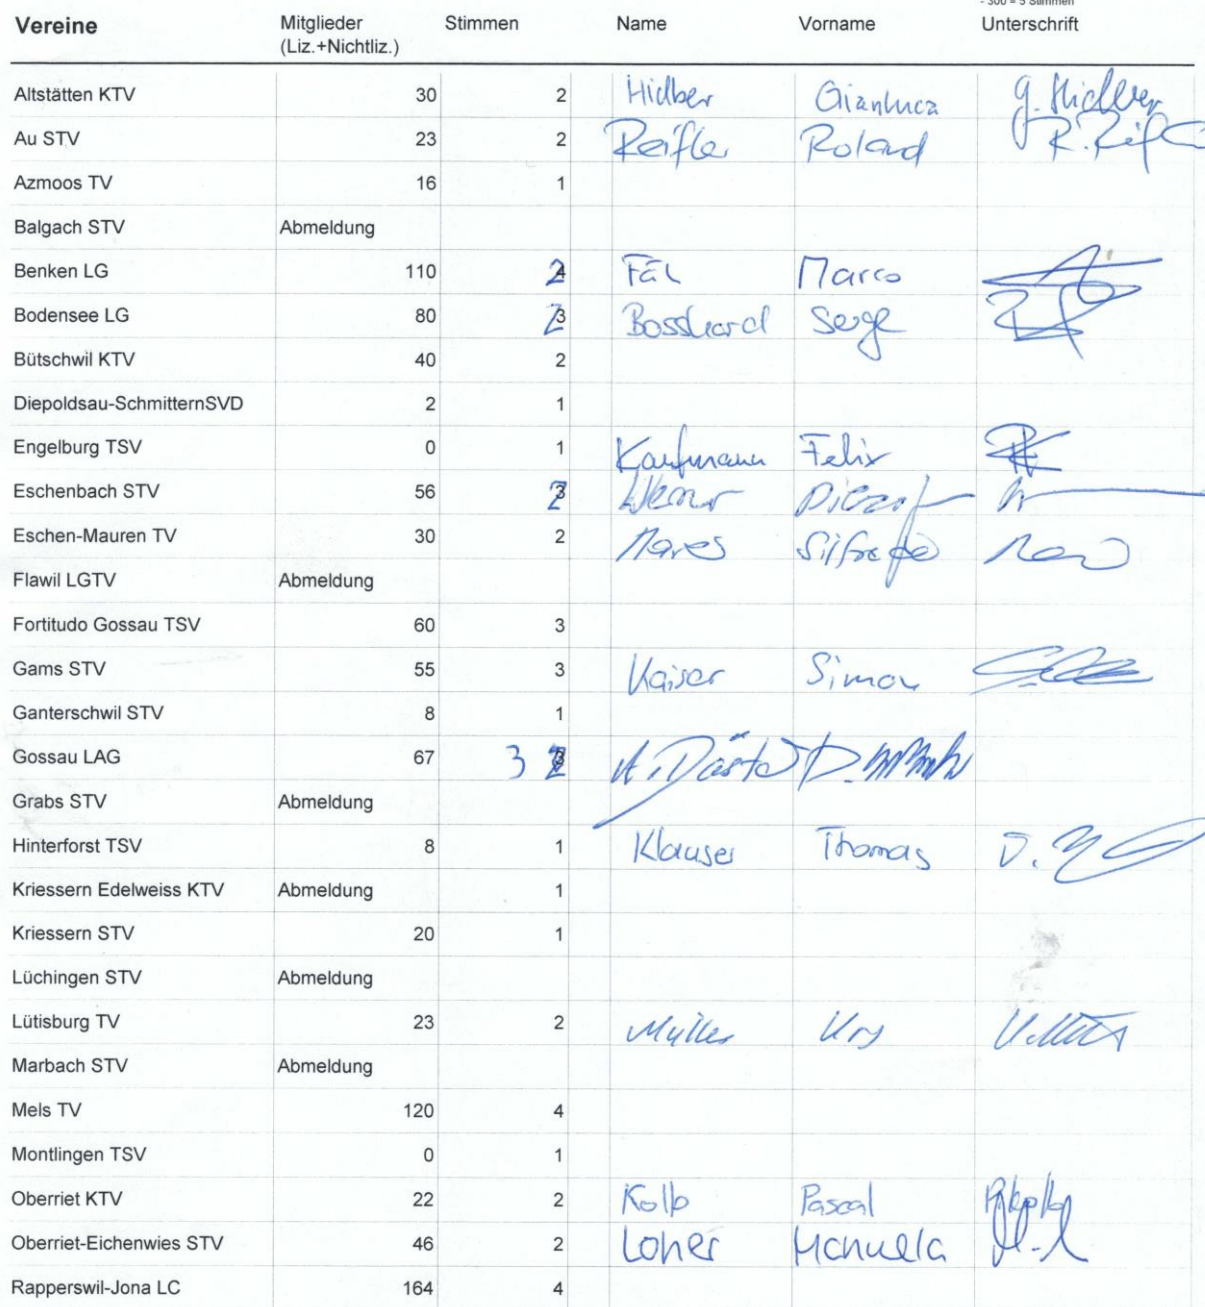 - 300 = 5 Stimmen
Vereine Mitglieder Stimmen Name Vorname Unterschrift
(Liz.+Nichtliz.)
Altstätten KTV 30 2 Hidber Gianluca G. Hidber
Au STV 23 2 Reifler Roland R. Reifler
Azmoos TV 16 1
Balgach STV Abmeldung
Benken LG 110 2 Fäh Marco
Bodensee LG 80 2 Bosshard Serge
Bütschwil KTV 40 2
Diepoldsau-SchmitternSVD 2 1
Engelburg TSV 0 1 Kaufmann Felix
Eschenbach STV 56 2
Eschen-Mauren TV 30 2 Mares
Flawil LGTV Abmeldung
Fortitudo Gossau TSV 60 3
Gams STV 55 3 Kaiser Simon
Ganterschwil STV 8 1
Gossau LAG 67 3 2
Grabs STV Abmeldung
Hinterforst TSV 8 1 Klauser Thomas
Kriessern Edelweiss KTV Abmeldung 1
Kriessern STV 20 1
Lüchingen STV Abmeldung
Lütisburg TV 23 2 Müller Urs
Marbach STV Abmeldung
Mels TV 120 4
Montlingen TSV 0 1
Oberriet KTV 22 2 Kolb Pascal P. Kolb
Oberriet-Eichenwies STV 46 2 Loher Manuela
Rapperswil-Jona LC 164 4